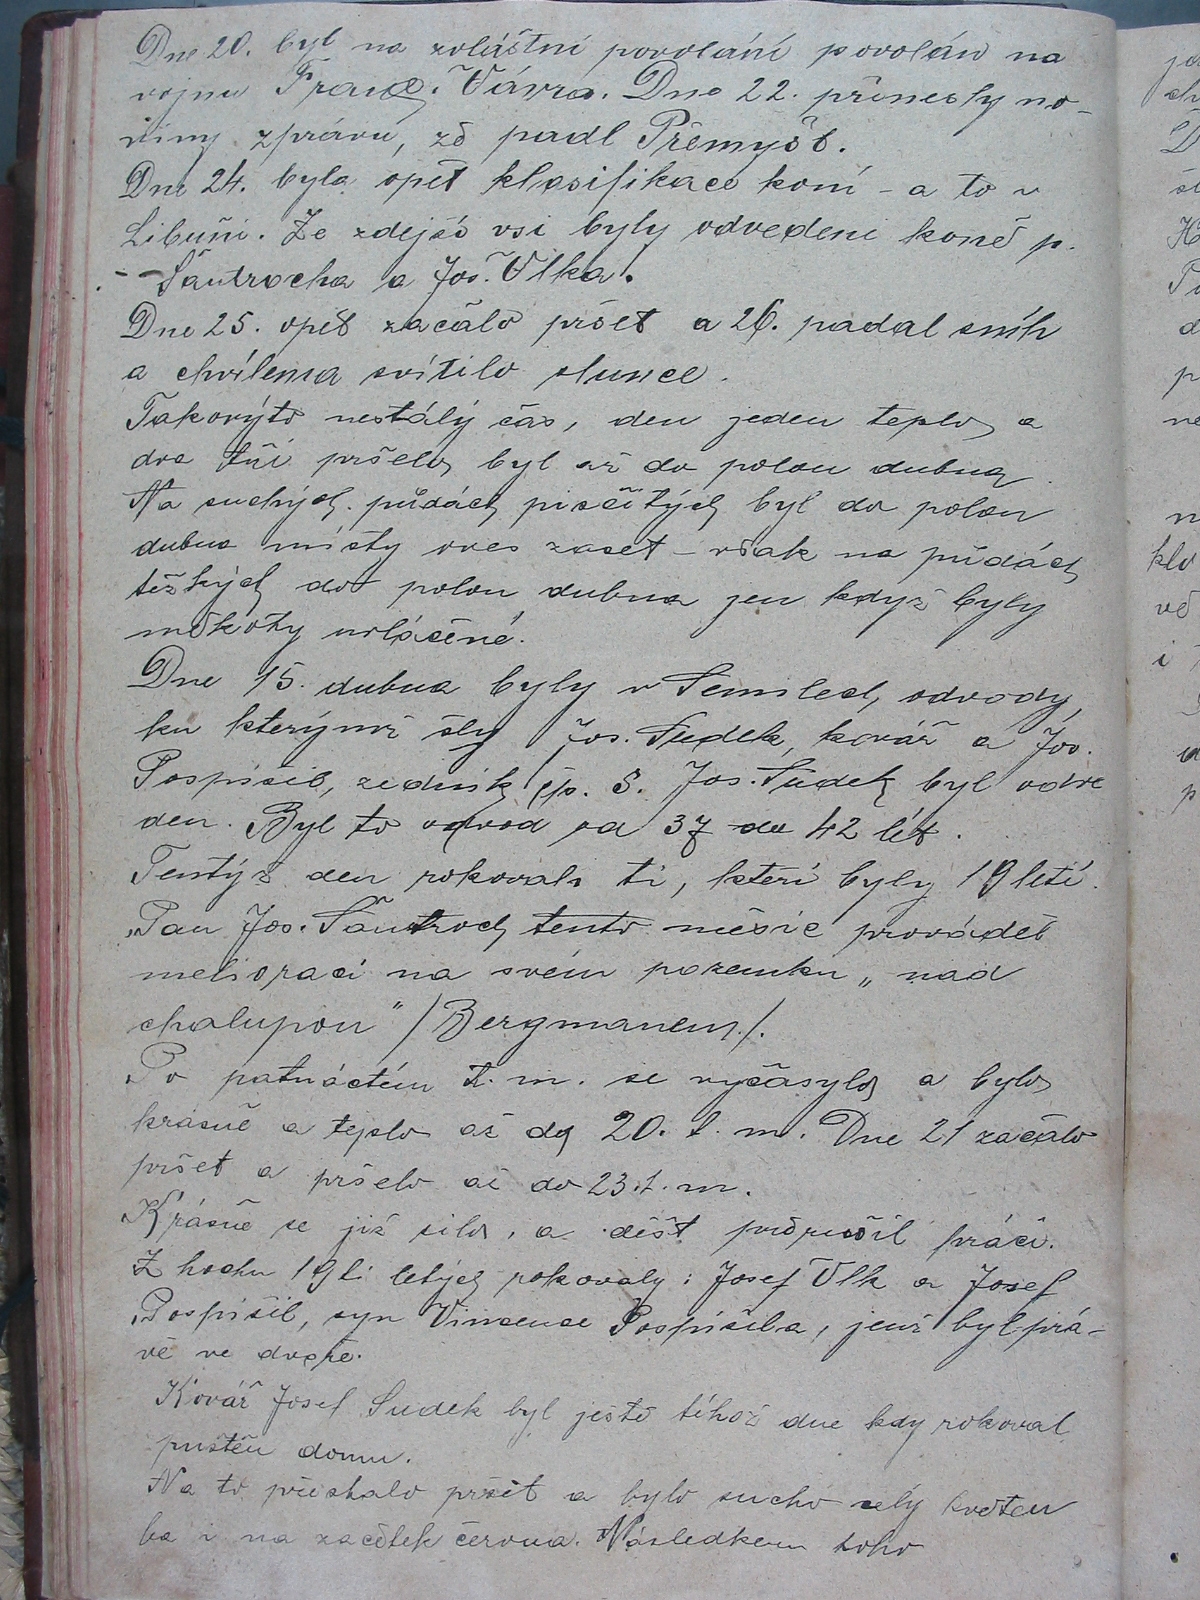 Dne 20. byl na zvláštní povolání povolán na
vojnu Frant. Vávra. Dne 22. přinesly no-
viny zprávu, že padl Přemyšl.
Dne 24. byla opět klasifikace koní – a to v
Libuni. Ze zdejší vsi byly odvedeni koně p.
Šantrocha a Jos. Vlka.
Dne 25. opět začalo pršet a 26. padal sníh
a chvílema svítilo slunce.
Takovýto nestálý čas, den jeden teplo a
dva tři pršelo, byl až do polou dubna.
Na suchých půdách písčitých byl do polou
dubna místy oves zaset – však na půdách
těžkých do polou dubna jen když byly
mokřoty uvláčené.
Dne 15. dubna byly v Semilech odvody,
ku kterýmž šly Jos. Sudek, kovář a Jos.
Pospíšil, zedník čp. 8. Jos. Sudek byl odve
den. Byl to odvod od 37 do 42 lét.
Tentýž den rokovali ti, kteří byly 19 letí.
Pan Jos. Šantroch tento měsíc prováděl
melioraci na svém pozemku „nad
chalupou" /Bergmanem/.
Po patnáctém t. m. se vyčasylo a bylo
krásně a teplo až do 20. t. m. Dne 21 začalo
pršet a pršelo až do 23. t. m.
Krásně se již silo, a déšť přerušil práci.
Z hochu 19ti letých rokovaly: Josef Vlk a Josef
Pospíšil, syn Vincence Pospíšila, jenž byl prá-
vě ve dvoře.
Kovář Josef Sudek byl ještě téhož dne kdy rokoval
puštěn domu.
Na to přestalo pršet a bylo sucho celý květen
ba i na začátek června. Následkem toho